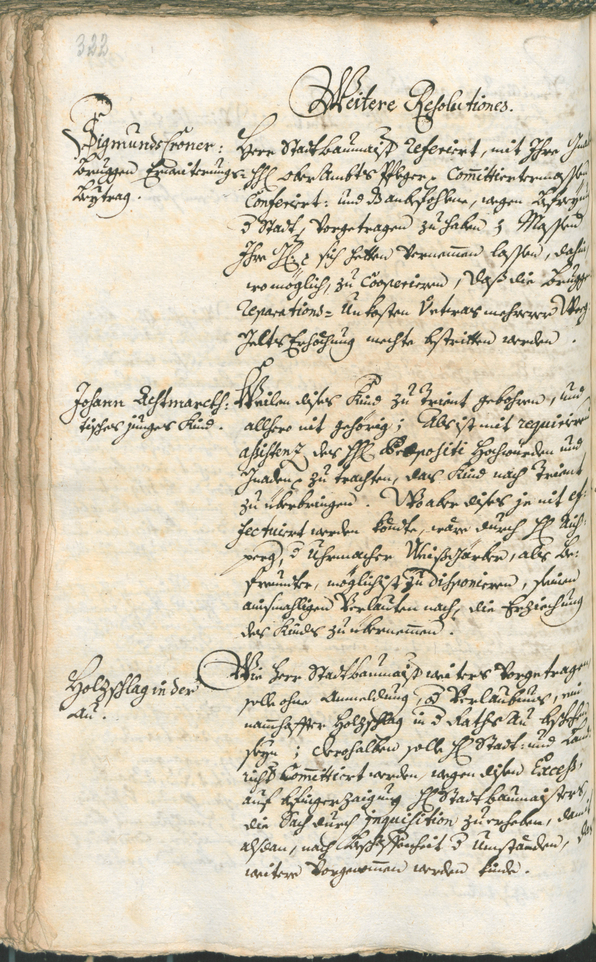 322
Weitere Resolutiones.
Sigmundscroner:
Bruggen Erweiterungs=
Beytrag.
Herr Stadtbaumaister Referiert, mit Ihro
Oberambts Pfleger, Committiertermassen
Conferiert: und Anbefohlne, wegen
Stadt, vorgetragen zu haben; Massen
Ihro sich hetten vernemmen lassen, dahin
wo möglich, zu Cooperieren, daß die Brugg
reparations= Unkosten mehrerer Weg
gelts Erhöchung mechte bestritten werden.
Johann Achtmarckh:
tisches junges Kind.
Weilen dises Kind zu Trient gebohren, und
allhero nit gehörig; Als ist mit
assistenz des Praepositi Hochwürden und
Gnaden zu trachten, das Kind nach Trient
zu überbringen. Wo aber dises je nit ef=
fectuiert werden köndte, wäre durch
perg, Uhrmacher als Be=
freundte, möglichist zu disponieren, seinem
ausmahligen Verlauten nach, die Erziechung
des Kinds zu übernemmen.
Holzschlag in der
Au.
Wie Herr Stadtbaumaister weiters vorgetragen,
solle ohne Anmeldung, Verlaubnus, ein
namhaffter Holzschlag in Raths Au
seyn; derohalben solle Stadt: und Land
richter Committiert werden, wegen disen Excess,
auf Fingerzaigung Stadtbaumaisters,
die Sach durch inquisition zu erheben, damit
alsdan, nach Beschaffenheit Umständen, das
weitere vorgenommen werden künde.